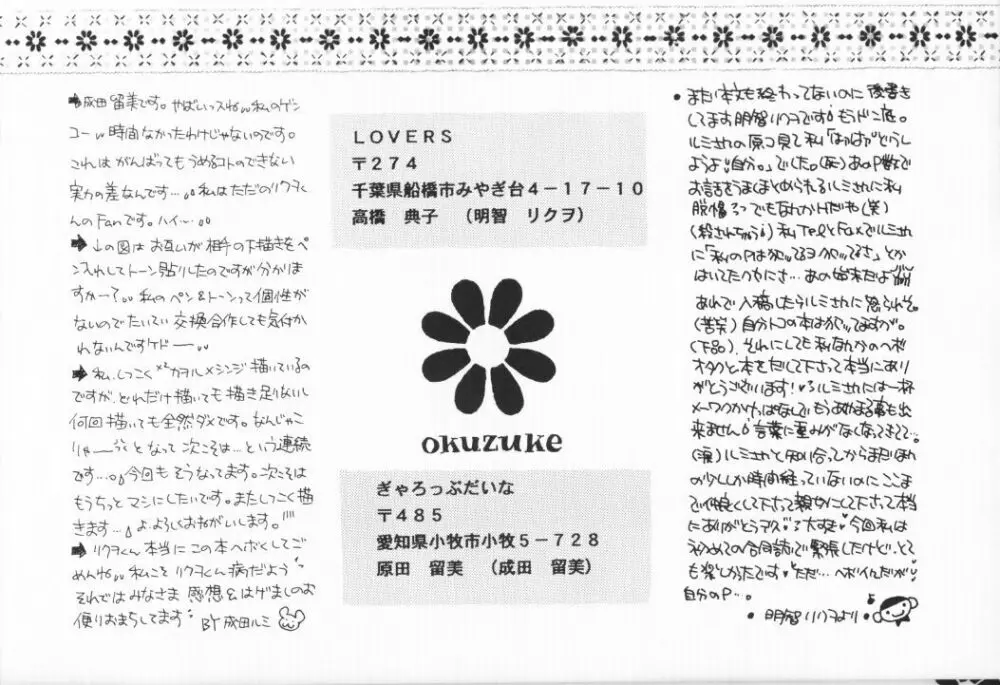 ➡成田留美です。やばいっスねw私のゲン
コーw時間なかったわけじゃないのです。
これはがんばってもうめるコトのできない
実力の差なんです…。私はただのリクヲく
んのFanです。ハイ…。
➡↓の図はお互いが相手の下描きをペ
ン入れしてトーン貼りしたのですが分かりま
すかー?私のペン&トーンって個性が
ないのでたいてい交換合作しても気付か
れないんですケドー。
➡私、しつこくカヲル×シンジ描いているの
ですが、どれだけ描いても描き足りないし
何回描いても全然ダメです。なんじゃこ
りゃーっっとなって次こそは…という連続
です…。今回もそうなってます。次こそは
もうちっとマシにしたいです。またしつこく描
きます…。よ、よろしくおねがいします。
➡リクヲくん本当にこの本へぼくしてご
めんね。私こそリクヲくん病だよう
それではみなさま感想&はげましのお
便りおまちしてます
BY成田ルミ
LOVERS
〒274
千葉県船橋市みやぎ台4-17-10
高橋 典子 (明智 リクヲ)
okuzuke
ぎゃろっぷだいな
〒485
愛知県小牧市小牧5-728
原田 留美 (成田 留美)
• まだ本文も終わってないのに後書き
してます明智リクヲです!もうドン底。
ルミさんの原コ見て私「なっはァ"どうし
ようよ自分。」でした。(死)あのP数で
お話をうまくまとめられるルミさんに私
脱帽っっでもなんかHだや(笑)
(殺されちゃう)私TelとFaxでルミさん
に「私のPは
とか
はいてたクセにさ…あの始末だよ
あれで入稿したらルミさんに怒られそ。
(苦笑)自分トコの本は
てますが。
(下品)それにしても私なんかのヘボ
オタクと本をだして下さって本当にあり
がとうございます!ルミさんには一杯
メーワクかけっぱなしでもうあやまる事も出
来ません言葉に重みがなくなってきてて…。
(涙)ルミさんと知り合ってからまだほん
の少ししか時間経っていないのにここま
で仲良くして下さって親切にして下さって本当
にありがとうデス 大好き 今回私は
初めての合同誌で緊張したけど、とて
も楽しかったです ただ…ヘボイんだが
自分のP…。
• 明智リクヲより •